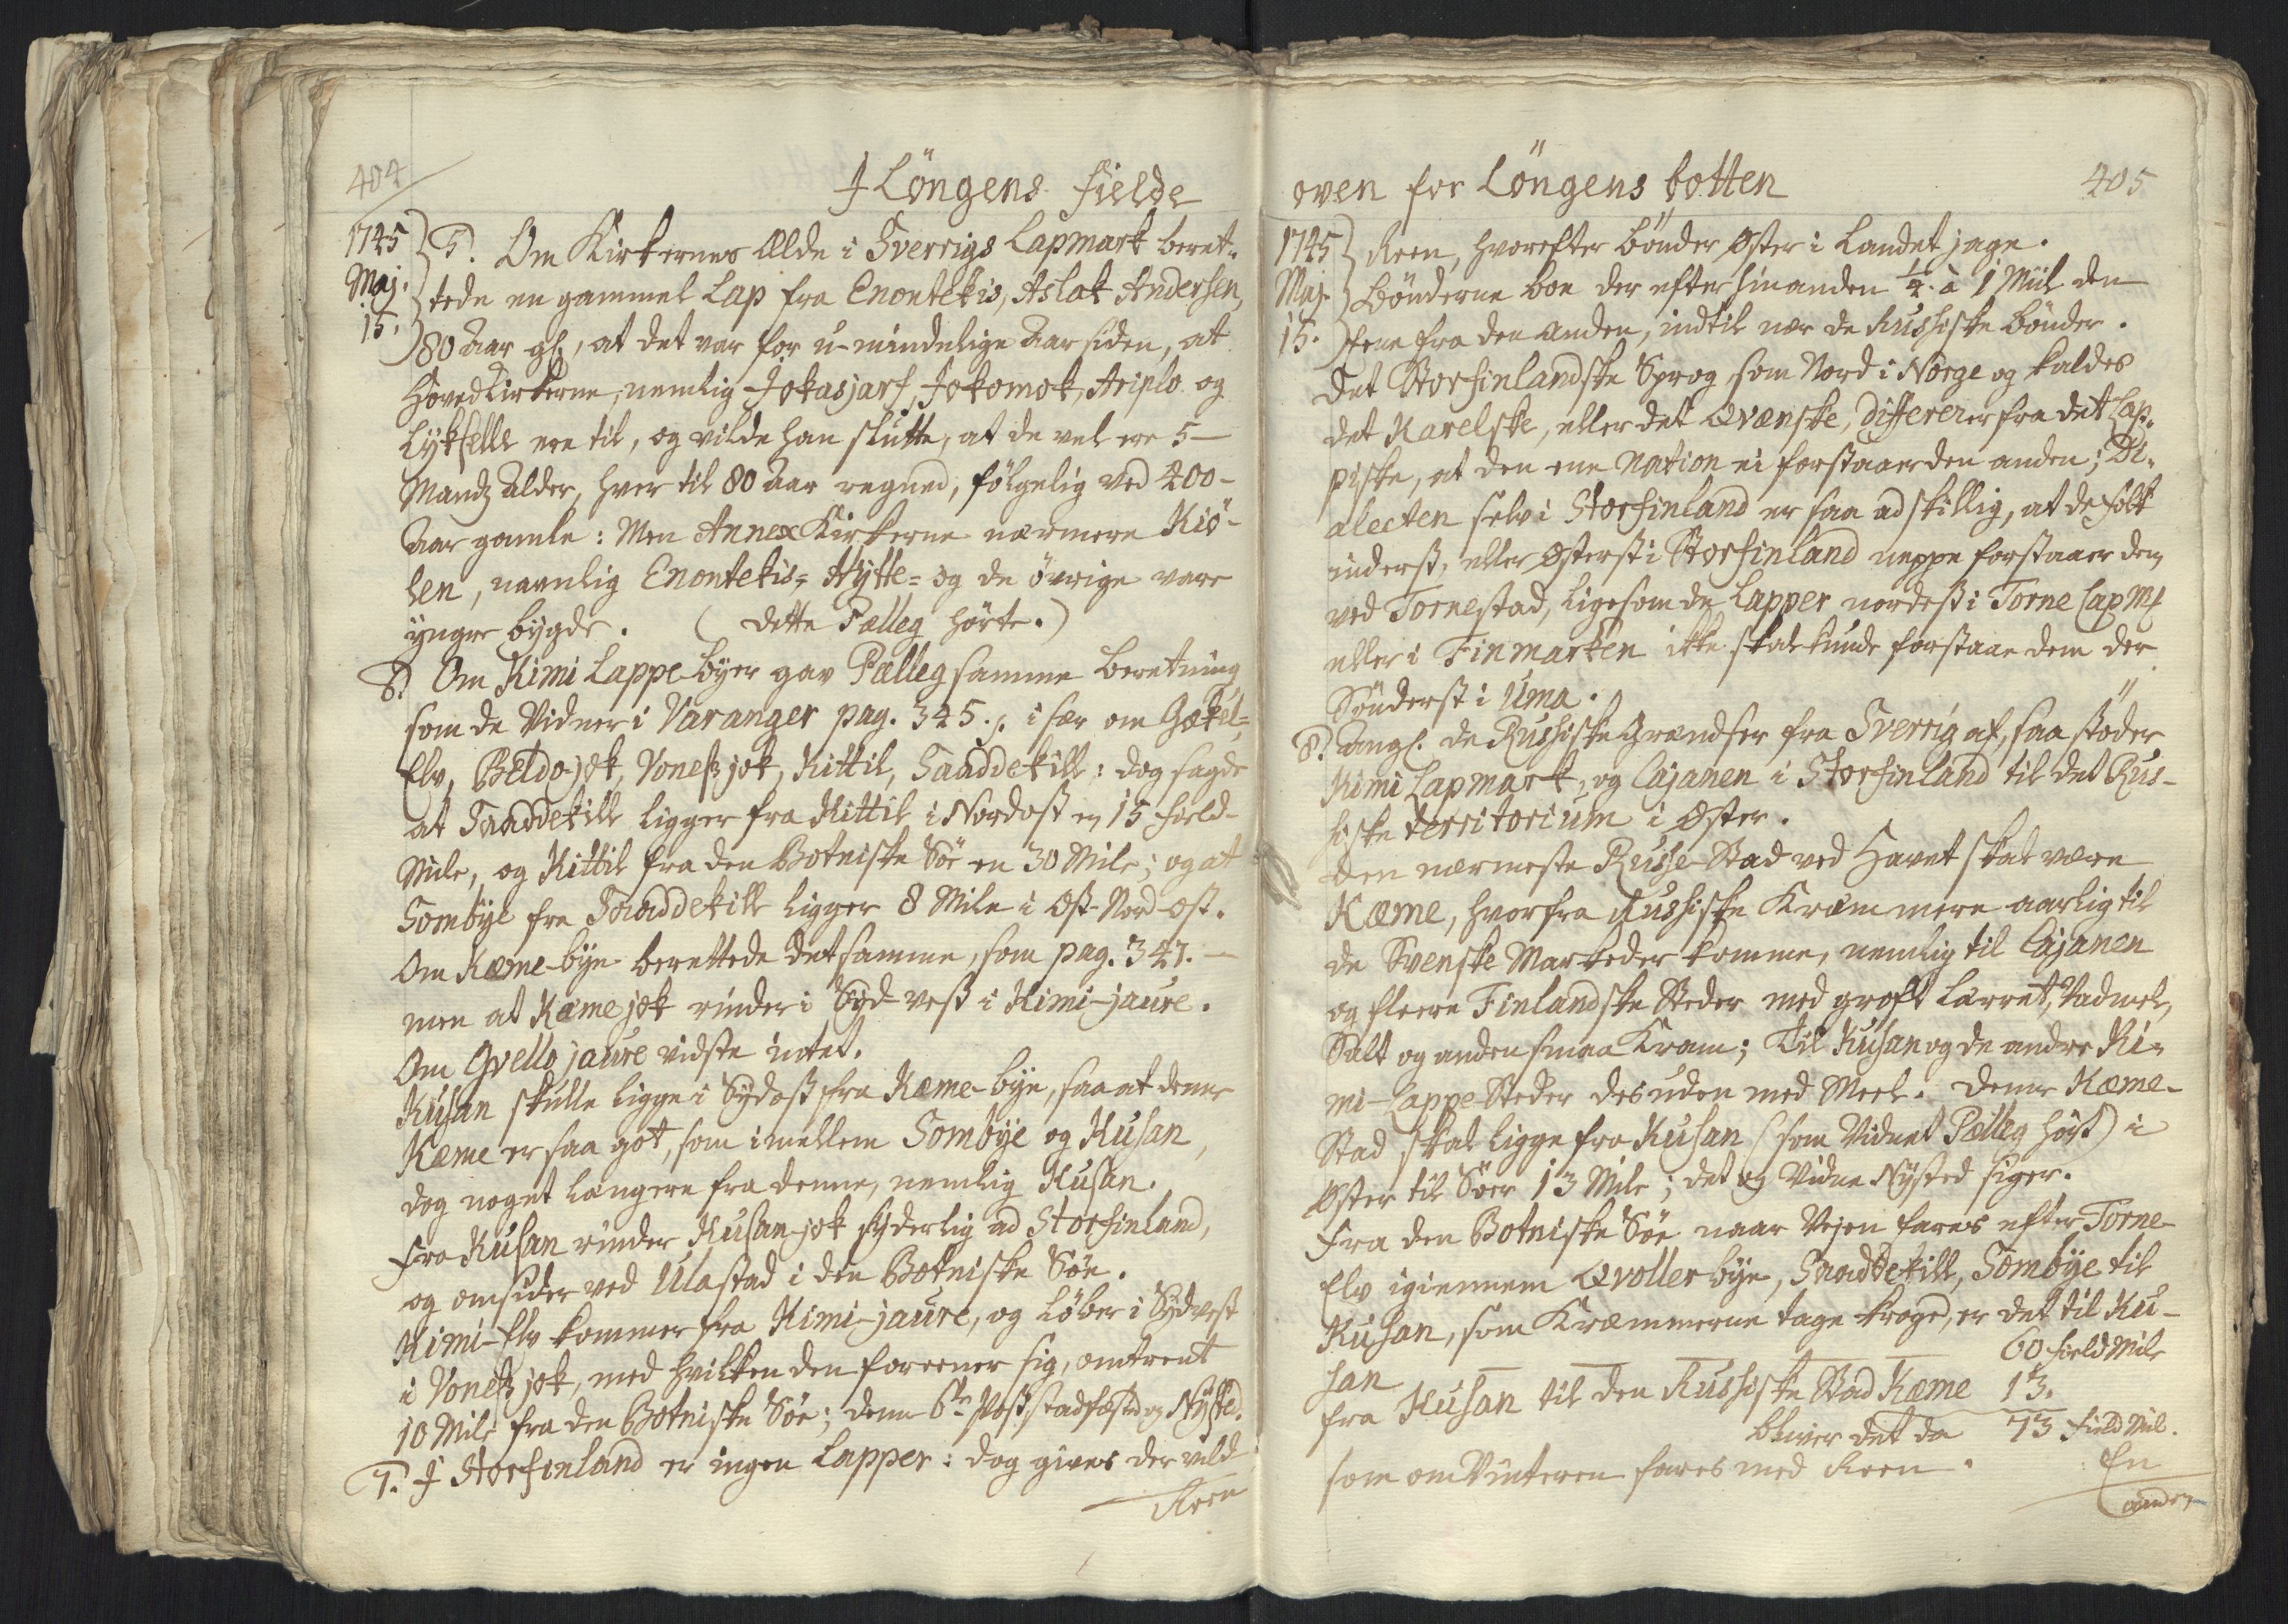 404
I Löngens Fielde
1745
Maj.
15.
5. Om Kirkernes Ælde i Sverrigs Lapmark beret-
tede en gammel Lap fra Enontekis, Aslak Andersen,
80 Aar gl, at det var for u-mindelige Aar siden, at
Hovedkirkerne, nemlig Jokasjarf, Jokomok, Ariplo og
Lykselle ere til, og vilde han slutte, at de vel ere 5
Mandz Alder, hver til 80 Aar regned, fölgelig ved 400-
Aar gamle: Men Annex Kirkerne nærmere Kiö-
len, navnlig Enontekis- Hytte- og de övrige vare
yngre bygde. (Dette Pælleg hörte.)
6. Om Kimi Lappe-byer gav Pælleg samme beretning
som de Vidner i Varanger pag. 345. især om Gækel-
Elv, Beldojok, Voneßjok, Kittil, Saaddekill: dog sagde
at Saaddekill ligger fra Kittil i Nordost en 15 Field-
Mile, og Kittil fra den Botniske Söe en 30 Mile; og at
Sombye fra Saaddekill ligger 8 Mile i Ost-Nord-Ost.
Om Kæme-bye berettede det samme, som pag. 347.
men at Kæmejok rinder i Syd-vest i Kimi-jaure.
Om Gvello jaure vidste intet.
Kusan skulle ligge i Sydost fra Kæme-bye, saa at denne
Kæme er saa got, som imellem Sombye og Kusan,
dog noget længere fra denne, nemlig Kusan.
Fra Kusan rinder Kusan-jok syderlig ad Storfinland,
og omsider ved Ulastad i den Botniske Söe.
Kimi-Elv kommer fra Kimi-jaure, og löber i Sydvest
i Voneßjok, med hvilken den foreener sig, omtrent
10 Mile fra den Botniske Söe; denne 6te Post stadfæsted og Nysted.
7. I Storfinland er ingen Lapper: dog gives der vild
Reen
oven for Löngens botten
405
1745
Maj.
15.
Reen, hvorefter bönder Öster i Landet jage.
Bönderne boe der efter hinanden 1/4 à 1 Miil den
eene fra den anden, indtil nær de Russiske bönder.
Det Storfinlandske Sprog som Nord i Norge og kaldes
det Karelske, eller det Qvænske, differerer fra det Lap-
piske, at den ene Nation ei forstaaer den anden; Di-
alecten selv i Storfinland er saa adskillig, at de Folk
inderst, eller Österst i Storfinland neppe forstaaer dem
ved Tornestad, ligesom de Lapper nordest i Torne Lapmk
eller i Finmarken ikke skal kunde forstaae dem der
Sönderst i Uma.
8. Angl. de Russiske Grændser fra Sverrig af, saa stöder
Kimi Lapmark, og Cajanen i Storfinland til det Rus-
siske territorium i Öster.
Den nærmeste Russe-Stad ved Havet skal være
Kæme, hvorfra Russiske Kræmmere aarlig til
de Svenske Markeder komme, nemlig til Cajanen
og fleere Finlandske Steder med groft Lærret, Vadmel,
Salt og anden smaa Kram; Til Kusan og de andre Ki-
mi-Lappe Steder desuden med Meel. Denne Kæme-
Stad skal ligge fra Kusan (som Vidnet Pælleg hört) i
Öster til Söer 13 Mile; det og Vidne Nysted siger.
Fra den Botniske Söe naar Vejen fares efter Torne-
Elv igiennem Qvollerbye, Saaddekill, Sombye til
Kusan, som Kræmmerne tage kroged, er det til Ku-
san 60 Field Mile
fra Kusan til den Russiske Stad Kæme 13.
bliver det da 73 Field Mil.
som om Vinteren fares med Reen.
En
anden